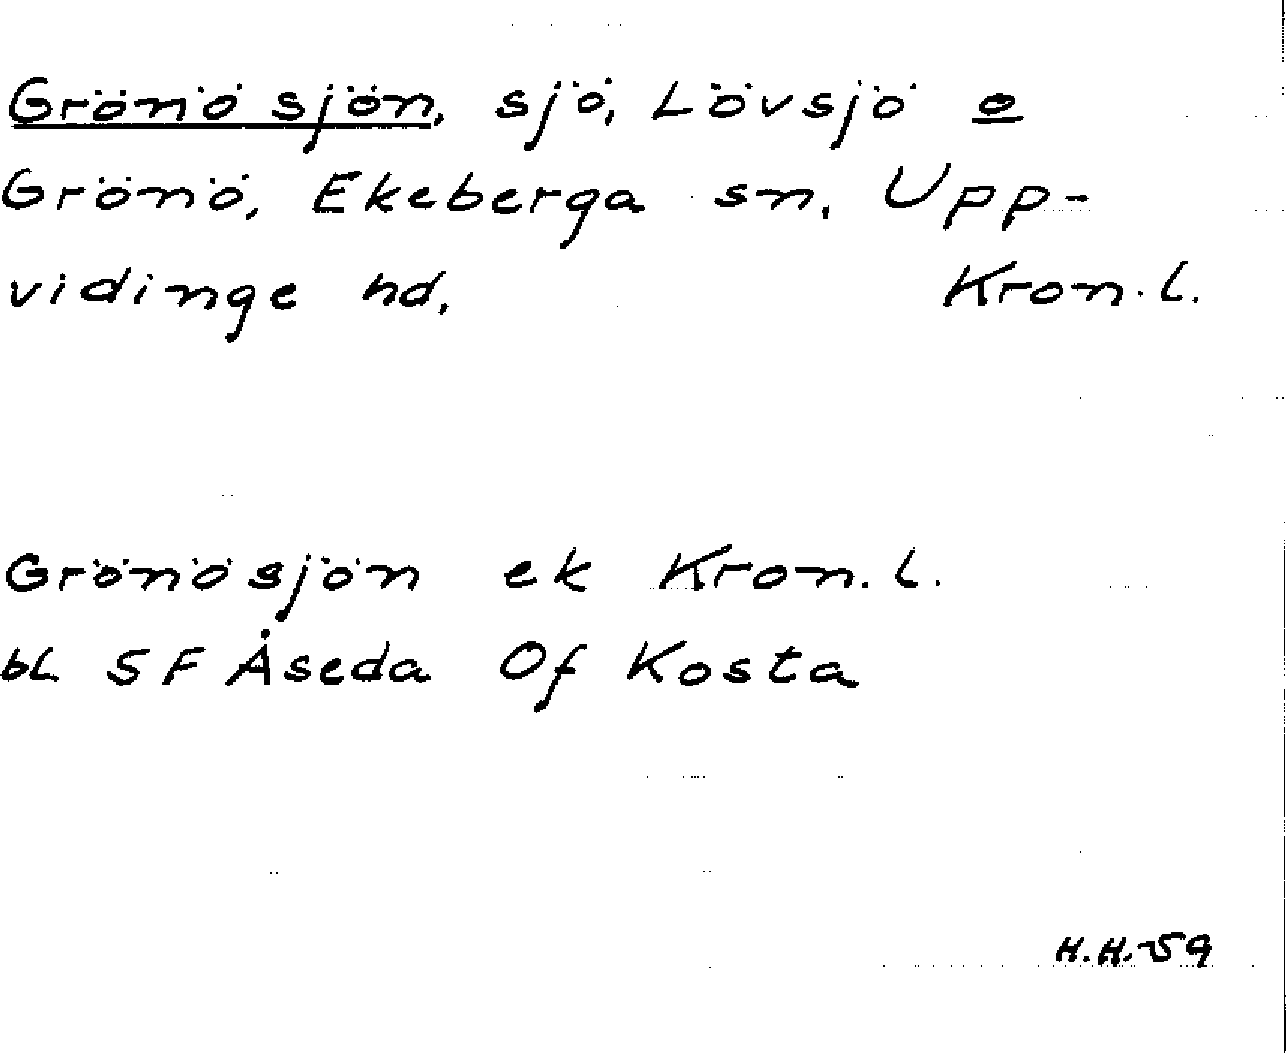 Grönösjön, sjö, Lövsjö o
Grönö, Ekeberga sn, Upp-
vidinge hd, Kron. l.
Grönösjön ek Kron. l.
bl 5F Åseda Of Kosta
H.H.-59